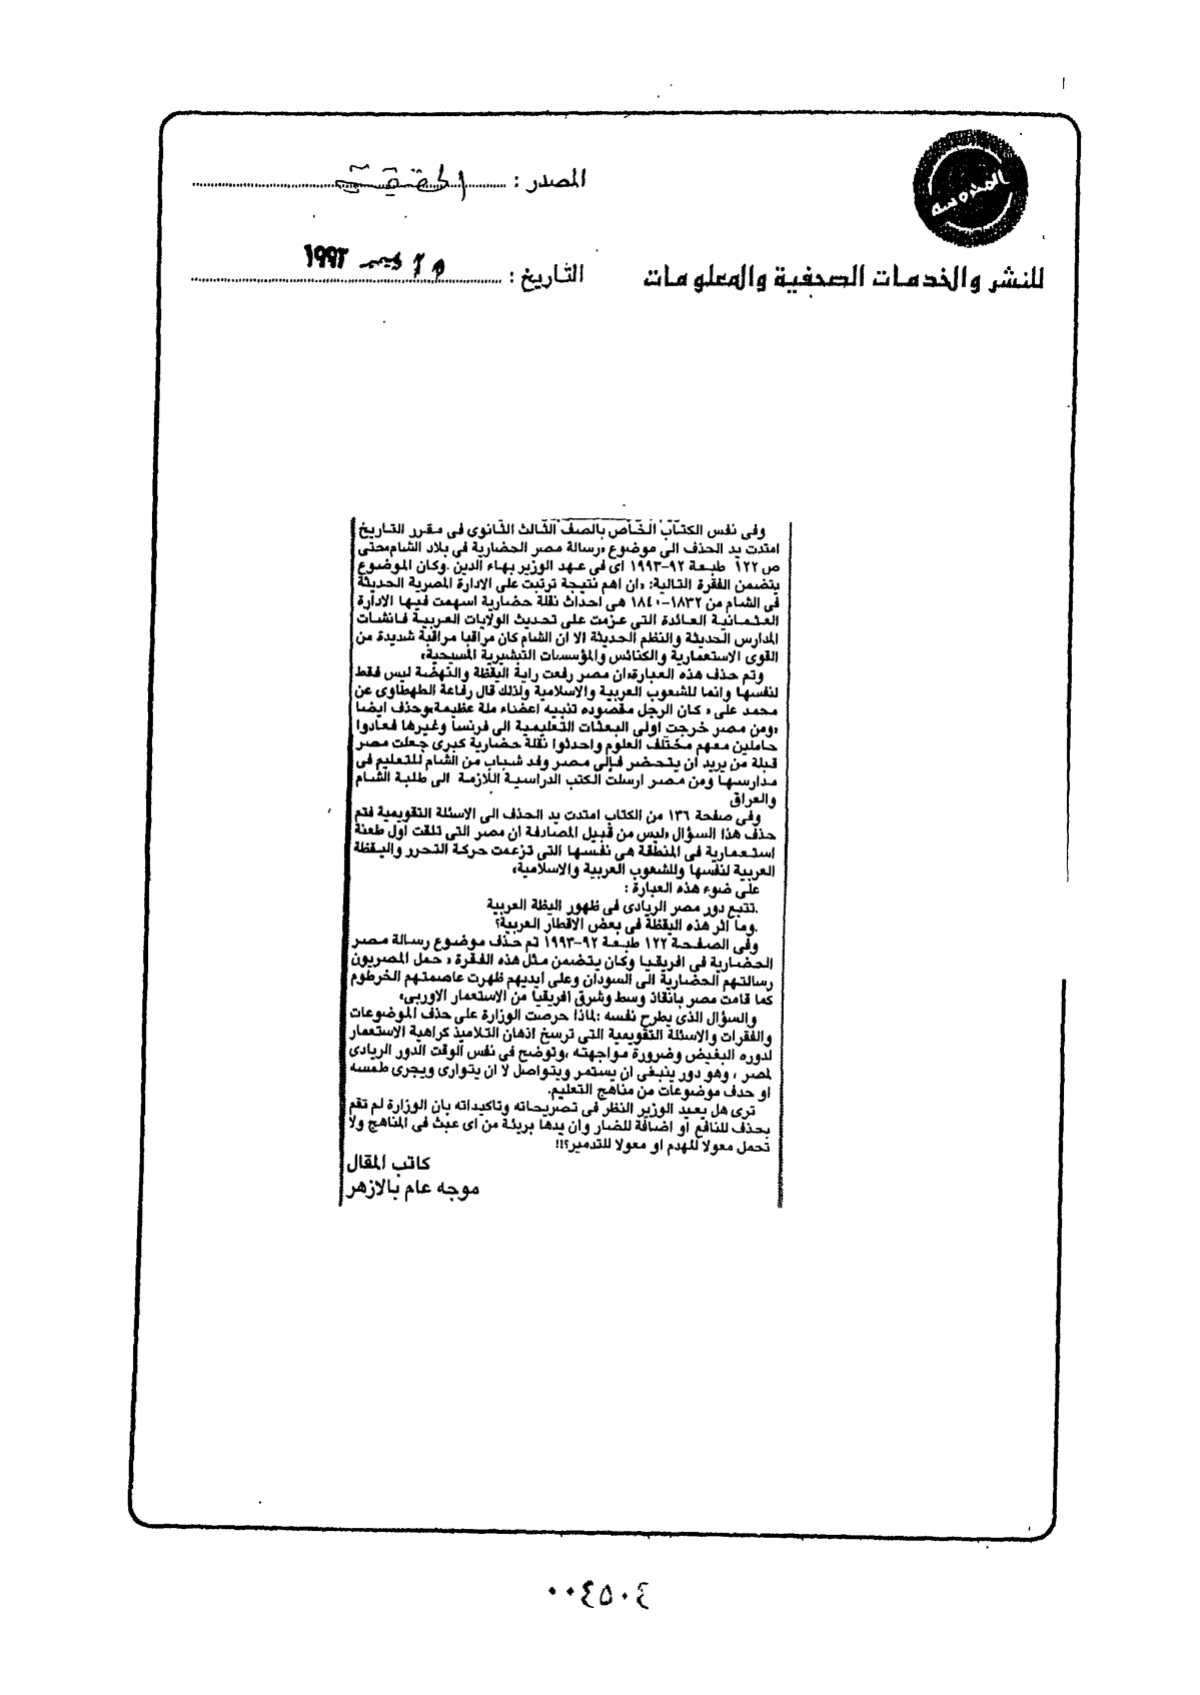 المحروسه
المصدر :
للنشر والخدمات الصحفية والمعلومات
التاريخ : ١٩٩٣
وفى نفس الكتاب الخاص بالصف الثالث الثانوى فى مقرر التاريخ
امتدت يد الحذف الى موضوع «رسالة مصر الحضارية فى بلاد الشام»حتى
ص ١٢٢ طبعة ٩٢-١٩٩٣ اى فى عهد الوزير بهاء الدين .وكان الموضوع
يتضمن الفقرة التالية: «ان اهم نتيجة ترتبت على الادارة المصرية الحديثة
فى الشام من ١٨٣٢-١٨٤٠ هى احداث نقلة حضارية اسهمت فيها الادارة
العثمانية العائدة التى عزمت على تحديث الولايات العربية فانشات
المدارس الحديثة والنظم الحديثة الا ان الشام كان مراقبا مراقبة شديدة من
القوى الاستعمارية والكنائس والمؤسسات التبشيرية المسيحية»
وتم حذف هذه العبارة«ان مصر رفعت راية اليقظة والنهضة ليس فقط
لنفسها وانما للشعوب العربية والاسلامية ولذلك قال رفاعة الطهطاوى عن
محمد على « كان الرجل مقصوده تنبيه اعضاء ملة عظيمة»وحذف ايضا
«ومن مصر خرجت اولى البعثات التعليمية الى فرنسا وغيرها فعادوا
حاملين معهم مختلف العلوم واحدثوا نقلة حضارية كبرى جعلت مصر
قبلة من يريد ان يتحضر فإلى مصر وفد شباب من الشام للتعليم فى
مدارسها ومن مصر ارسلت الكتب الدراسية اللازمة الى طلبة الشام
والعراق
وفى صفحة ١٣٦ من الكتاب امتدت يد الحذف الى الاسئلة التقويمية فتم
حذف هذا السؤال «ليس من قبيل المصادفة ان مصر التى تلقت اول طعنة
استعمارية فى المنطقة هى نفسها التى تزعمت حركة التحرر واليقظة
العربية لنفسها وللشعوب العربية والاسلامية»
على ضوء هذه العبارة :
.تتبع دور مصر الريادى فى ظهور اليظة العربية
.وما اثر هذه اليقظة فى بعض الاقطار العربية؟
وفى الصفحة ١٢٢ طبعة ٩٢-١٩٩٣ تم حذف موضوع رسالة مصر
الحضارية فى افريقيا وكان يتضمن مثل هذه الفقرة « حمل المصريون
رسالتهم الحضارية الى السودان وعلى ايديهم ظهرت عاصمتهم الخرطوم
كما قامت مصر بانقاذ وسط وشرق افريقيا من الاستعمار الاوربى»
والسؤال الذى يطرح نفسه :لماذا حرصت الوزارة على حذف الموضوعات
والفقرات والاسئلة التقويمية التى ترسخ اذهان التلاميذ كراهية الاستعمار
لدوره البغيض وضرورة مواجهته ،وتوضح فى نفس الوقت الدور الريادى
لمصر ، وهو دور ينبغى ان يستمر ويتواصل لا ان يتوارى ويجرى طمسه
او حدف موضوعات من مناهج التعليم.
ترى هل يعيد الوزير النظر فى تصريحاته وتاكيداته بان الوزارة لم تقم
بحذف للنافع او اضافة للضار وان يدها بريئة من اى عبث فى المناهج ولا
تحمل معولا للهدم او معولا للتدمير؟!!
كاتب المقال
موجه عام بالازهر
٠٠٤٥٠٤